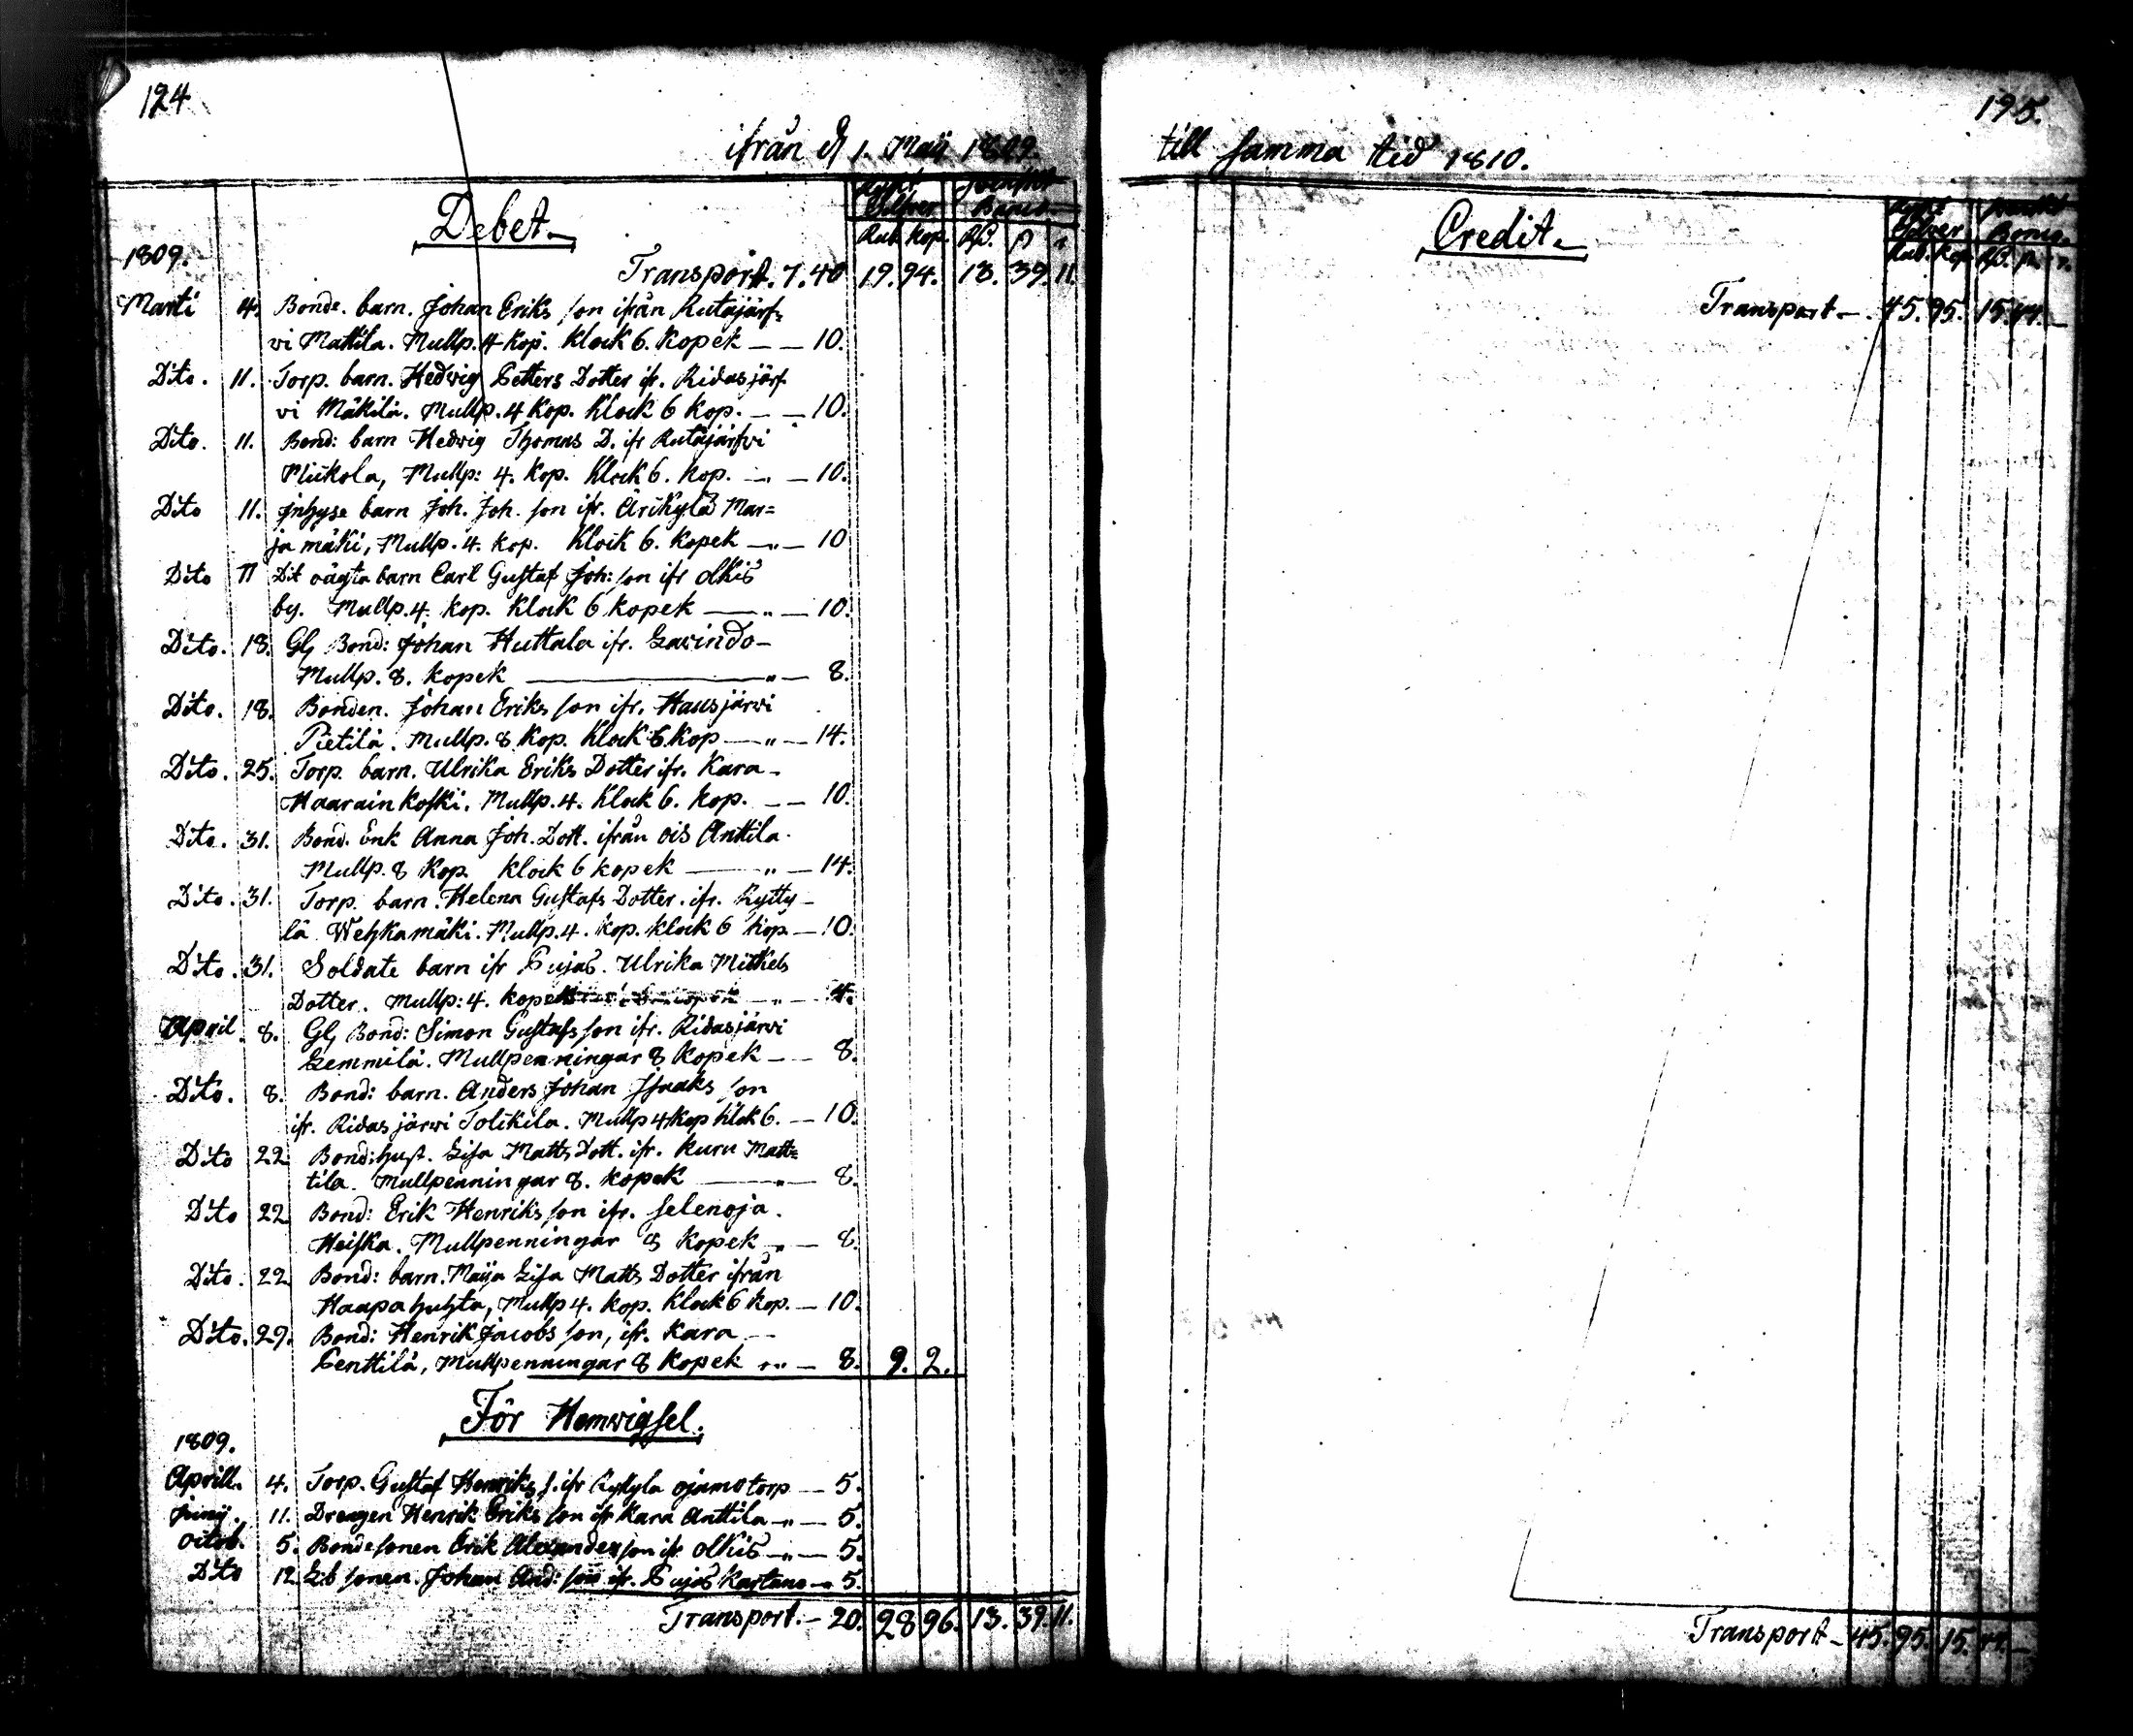 124
ifrån d 1. Maij 1809.
Ryskt Svenskt
Silfver Banco
Debet.
Rub. Kop. R/S. ß r
1809.
Transport. 7. 40 19. 94. 13. 39. 11.
Marti 4. Bonde. barn. Johan Eriks son ifrån Rutajärf=
vi Mattila. Mullp. 4 Kop. Klock 6. Kopek — — 10.
Dito. 11. Torp. barn. Hedwig Petters Dotter ifr. Ridasjärf-
vi Mäkilä. Mullp. 4 Kop. Klock 6 Kop. — — 10.
Dito. 11. Bond: barn Hedwig Thomas D. ifr Rutajärfvi
Mickola, Mullp: 4. Kop. Klock 6. Kop. — — 10.
Dito 11. Inhyse barn Joh. Joh. son ifr. Ärikylä Mar=
ja mäki, Mullp. 4. kop. Klock 6. Kopek — „ — 10
Dito 11 Dit oägta barn Carl Gustaf Joh: son ifr Olkis
by. Mullp. 4. Kop. Klock 6 Kopek — „ — 10.
Dito. 18. Gl. Bond: Johan Huttala ifr. Lavindo-
Mullp. 8. Kopek — „ — 8.
Dito. 18. Bonden. Johan Eriks son ifr. Hausjärvi
Pietilä. Mullp. 8 Kop. Klock 6 Kop — „ — 14.
Dito. 25. Torp. barn. Ulrika Eriks Dotter ifr. Kara-
Haarain Koski. Mullp. 4. Klock 6. Kop. — — 10.
Dito. 31. Bond. Enk Anna Joh. Dott. ifrån Ois Anttila.
Mullp. 8 Kop. Klock 6 Kopek — „ — 14.
Dito. 31. Torp. barn. Helena Gustafs Dotter. ifr. Rytty-
lä Wehkamäki. Mullp. 4. Kop. Klock 6 Kop. — 10.
Dito. 31. Soldate barn ifr Pujas. Ulrika Mickels
Dotter. Mullp: 4. Kopek — „ — 4.
April. 8. Gl. Bond: Simon Gustafs son ifr. Ridasjärvi
Lemmilä. Mullpenningar 8 Kopek — — 8.
Dito. 8. Bond: barn. Anders Johan Isaaks son
ifr. Ridasjärvi Tolckila. Mullp 4 Kop Klok 6. — 10.
Dito 22 Bond: hust. Lisa Matts Dott. ifr. Kuru Matt=
tila. Mullpenningar 8. Kopek — „ — 8.
Dito 22 Bond: Erik Henriks son ifr. Selenoja.
Heiska. Mullpenningar 8 Kopek „ — 8.
Dito. 22 Bond: barn. Maija Lisa Matts Dotter ifrån
Haapahuhta, Mullp 4. Kop. Klock 6 Kop. — 10.
Dito. 29. Bond: Henrik Jacobs son, ifr. Kara —
Penttilä, Mullpenningar 8 Kopek „ — 8. 9. 2.
För Hemvigsel.
1809.
Aprill. 4. Torp. Gustaf Henriks s. ifr Ojamo torp — 5.
Junij. 11. Drengen Henrik Eriks son ifr Kara Anttila — „ — 5.
Octob. 5. Bondesonen Erik Alexanders son ifr Olkis — „ — 5.
Dito 12 sonen. Johan And: son ifr. Pujas Kartano — 5.
Transport. — 20. 28 96. 13. 39. 11.
195.
till samma tid 1810.
Ryskt Svenskt
Silver Banco.
Credit.
Rub. Kop. R/S. ß. r.
Transport — 45. 95. 15.
Transport — 45. 95. 15.